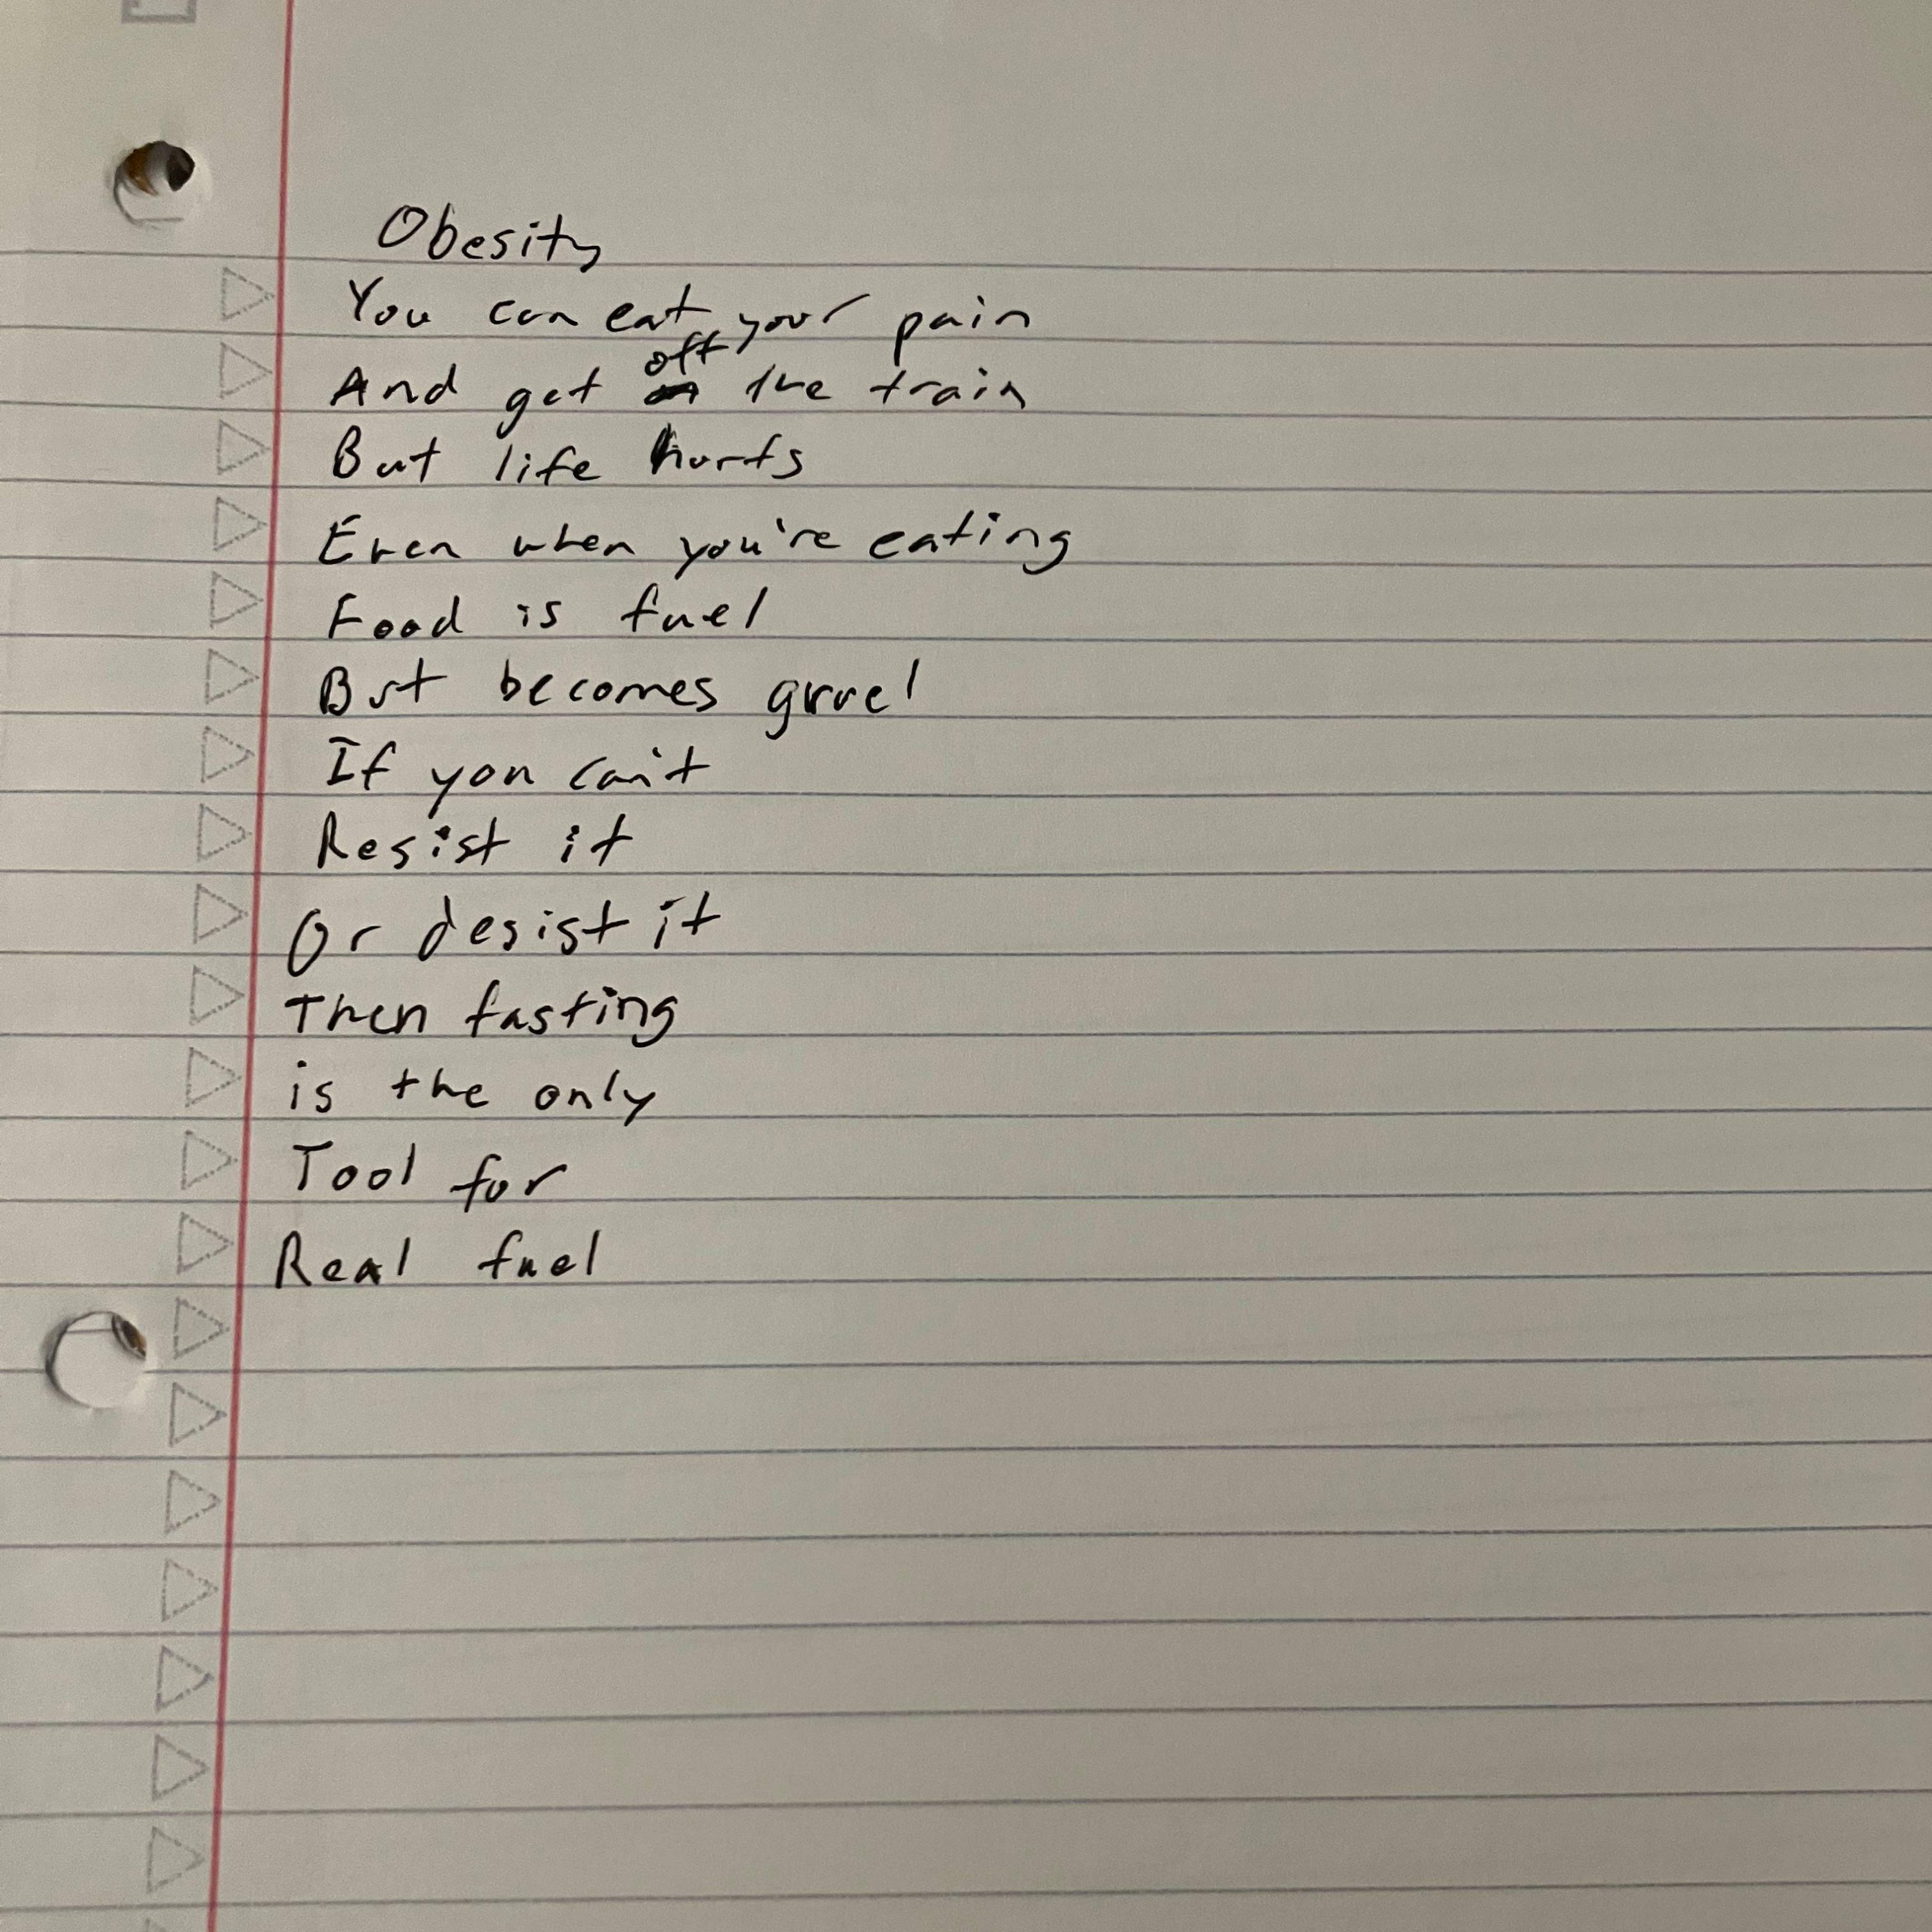 Obesity
You can eat your pain
And get off the train
But life hurts
Even when you're eating
Food is fuel
But becomes gruel
If you can't
Resist it
Or desist it
Then fasting
is the only
Tool for
Real fuel